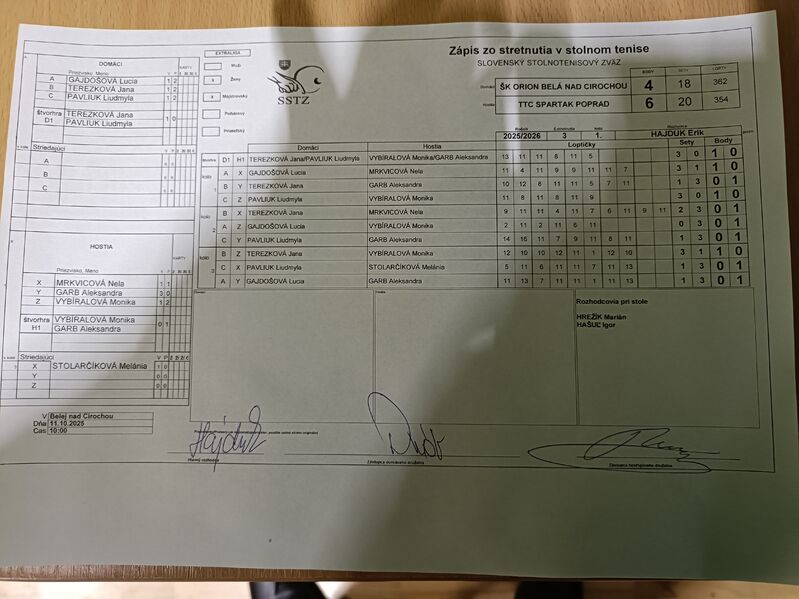 Zápis zo stretnutia v stolnom tenise
SLOVENSKÝ STOLNOTENISOVÝ ZVÄZ
SSTZ
EXTRALIGA
Muži
x Ženy
x Majstrovský
Pohárový
Priateľský
BODY SETY LOPTY
Domáci ŠK ORION BELÁ NAD CIROCHOU 4 18 362
Hostia TTC SPARTAK POPRAD 6 20 354
Ročník Stretnutie Kolo
2025/2026 3 1. HAJDUK Erik
DOMÁCI
Priezvisko, Meno V P KARTY
A GAJDOŠOVÁ Lucia 1 2
B TEREZKOVÁ Jana 1 2
C PAVLIUK Liudmyla 1 2
štvorhra D1 TEREZKOVÁ Jana 1 0
PAVLIUK Liudmyla
Striedajúci V P
A 0 0
B 0 0
C 0 0
HOSTIA
Priezvisko, Meno V P KARTY
X MRKVICOVÁ Nela 1 1
Y GARB Aleksandra 3 0
Z VYBÍRALOVÁ Monika 1 2
štvorhra H1 VYBÍRALOVÁ Monika 0 1
GARB Aleksandra
Striedajúci V P
X STOLARČÍKOVÁ Melánia 1 0
Y 0 0
Z 0 0
V Belej nad Cirochou
Dňa 11.10.2025
Čas 10:00
Domáci Hostia Loptičky Sety Body
štvorhra D1 H1 TEREZKOVÁ Jana/PAVLIUK Liudmyla VYBÍRALOVÁ Monika/GARB Aleksandra 13 11 11 8 11 5 3 0 1 0
A X GAJDOŠOVÁ Lucia MRKVICOVÁ Nela 11 4 11 9 9 11 11 7 3 1 1 0
B Y TEREZKOVÁ Jana GARB Aleksandra 10 12 8 11 11 5 7 11 1 3 0 1
C Z PAVLIUK Liudmyla VYBÍRALOVÁ Monika 11 8 11 8 11 9 3 0 1 0
B X TEREZKOVÁ Jana MRKVICOVÁ Nela 9 11 11 4 11 7 6 11 9 11 2 3 0 1
A Z GAJDOŠOVÁ Lucia VYBÍRALOVÁ Monika 2 11 2 11 6 11 0 3 0 1
C Y PAVLIUK Liudmyla GARB Aleksandra 14 16 11 7 9 11 8 11 1 3 0 1
B Z TEREZKOVÁ Jana VYBÍRALOVÁ Monika 12 10 10 12 11 1 12 10 3 1 1 0
C X PAVLIUK Liudmyla STOLARČÍKOVÁ Melánia 5 11 6 11 11 7 11 13 1 3 0 1
A Y GAJDOŠOVÁ Lucia GARB Aleksandra 11 13 7 11 11 6 1 11 1 3 0 1
Rozhodcovia pri stole
HREŽÍK Marián
HAŠUĽ Igor
Hlavný rozhodca
Zástupca domáceho družstva
Zástupca hosťujúceho družstva